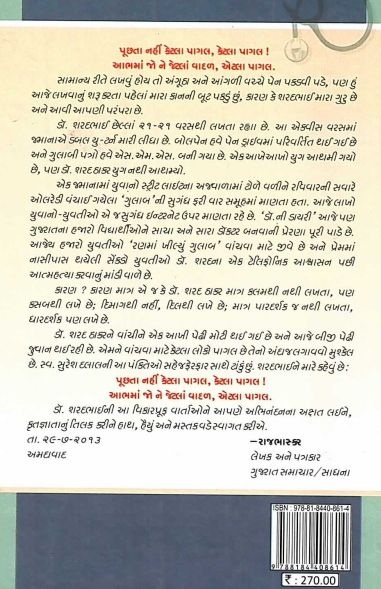 પૂછતા નહીં કેટલા પાગલ, કેટલા પાગલ !
આભમાં જો ને જેટલાં વાદળ, એટલા પાગલ.
સામાન્ય રીતે લખવું હોય તો અંગૂઠા અને આંગળી વચ્ચે પેન પકડવી પડે, પણ હું
આજે લખવાનું શરૂ કરતા પહેલાં મારા કાનની બૂટ પકડું છું, કારણ કે શરદભાઈ મારા ગુરુ છે
અને આવી આપણી પરંપરા છે.
ડૉ. શરદભાઈ છેલ્લાં ૨૧-૨૧ વરસથી લખતા રહ્યા છે. આ એકવીસ વરસમાં
જમાનાએ ડબલ યુ-ટર્ન મારી લીધા છે. બોલપેન હવે પેન ડ્રાઈવમાં પરિવર્તિત થઈ ગઈ છે
અને ગુલાબી પત્રો હવે એસ.એમ.એસ. બની ગયા છે. એક આખેઆખો યુગ આથમી ગયો
છે, પણ ડૉ. શરદ ઠાકર યુગ નથી આથમ્યો.
એક જમાનામાં યુવાનો સ્ટ્રીટ લાઈટના અજવાળામાં ટોળે વળીને રવિવારની સવારે
ઓલરેડી વંચાઈ ગયેલા ‘ગુલાબ’ની સુગંધ ફરી વાર સમૂહમાં માણતા હતા. આજે લાખો
યુવાનો-યુવતીઓ એ જ સુગંધ ઇન્ટરનેટ ઉપર માણતા રહે છે. ‘ડૉ.ની ડાયરી’ આજે પણ
ગુજરાતના હજારો વિદ્યાર્થીઓને સાચા અને સારા ડૉક્ટર બનવાની પ્રેરણા પૂરી પાડે છે.
આજેય હજારો યુવતીઓ ‘રણમાં ખીલ્યું ગુલાબ’ વાંચવા માટે જીવે છે અને પ્રેમમાં
નાસીપાસ થયેલી સેંકડો યુવતીઓ ડૉ. શરદના એક ટેલિફોનિક આશ્વાસન પછી
આત્મહત્યા કરવાનું માંડી વાળે છે.
કારણ ? કારણ માત્ર એ જ કે ડૉ. શરદ ઠાકર માત્ર કલમથી નથી લખતા, પણ
કસબથી લખે છે; દિમાગથી નહીં, દિલથી લખે છે; માત્ર પારદર્શક જ નથી લખતા,
ધારદર્શક પણ લખે છે.
ડૉ. શરદ ઠાકરને વાંચીને એક આખી પેઢી મોટી થઈ ગઈ છે અને આજે બીજી પેઢી
જુવાન થઈ રહી છે. એમને વાંચવા માટે કેટલા લોકો પાગલ છે તેનો અંદાજ લગાવવો મુશ્કેલ
છે. સ્વ. સુરેશ દલાલની આ પંક્તિઓ સહેજ ફેરફાર સાથે ટાંકું છું. શરદભાઈને મારે કહેવું છે :
પૂછતા નહીં કેટલા પાગલ, કેટલા પાગલ !
આભમાં જો ને જેટલાં વાદળ, એટલા પાગલ.
ડૉ. શરદભાઈની આ વિચારપ્રૂફ વાર્તાઓને આપણે અભિનંદનના અક્ષત લઈને,
કૃતજ્ઞતાનું તિલક કરીને હાથ, હૈયું અને મસ્તક વડે સ્વાગત કરીએ.
તા. ૨૯-૭-૨૦૧૩
–રાજભાસ્કર
અમદાવાદ
લેખક અને પત્રકાર
ગુજરાત સમાચાર/સાધના
ISBN : 978-81-8440-861-4
9 788184 408614
₹ : 270.00